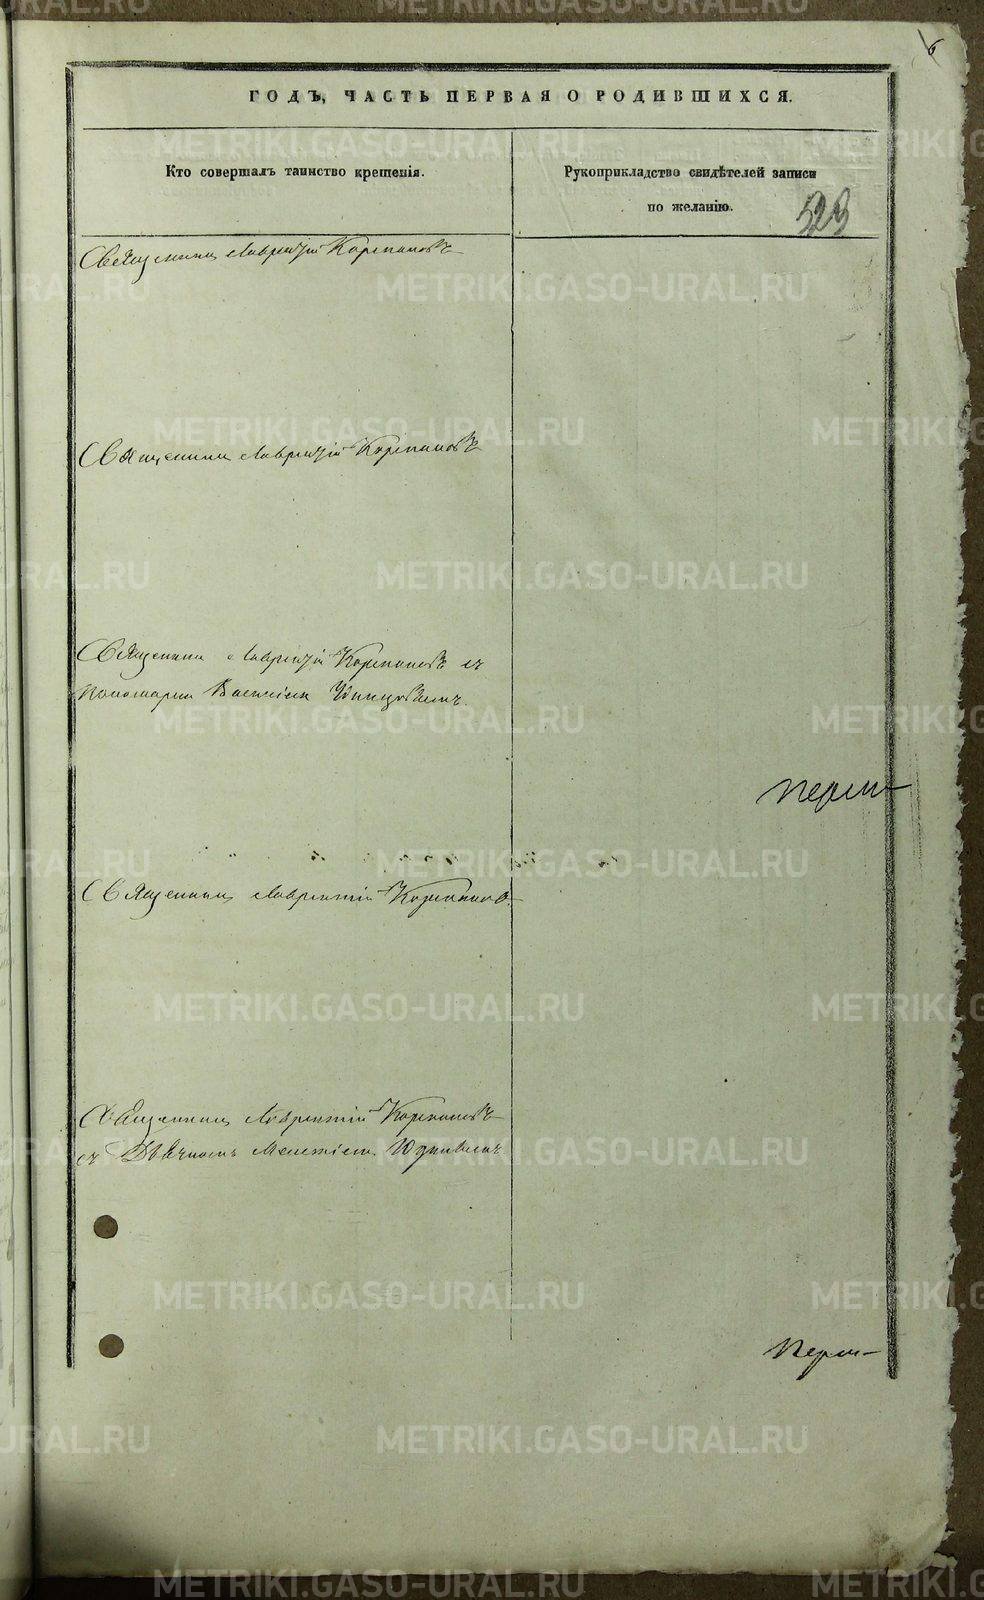 6
ГОДЪ, ЧАСТЬ ПЕРВАЯ О РОДИВШИХСЯ.
Кто совершалъ таинство крещенія.
Рукоприкладство свидѣтелей записи
по желанію.
523
Священникъ Лаврентій Корепановъ
Священникъ Лаврентій Корепановъ
Священникъ Лаврентій Корепановъ съ
пономаремъ Василіемъ
Священникъ Лаврентій Корепановъ
Священникъ Лаврентій Корепановъ
съ Дьячкомъ Мелетіемъ Юдинымъ
METRIKI.GASO-URAL.RU